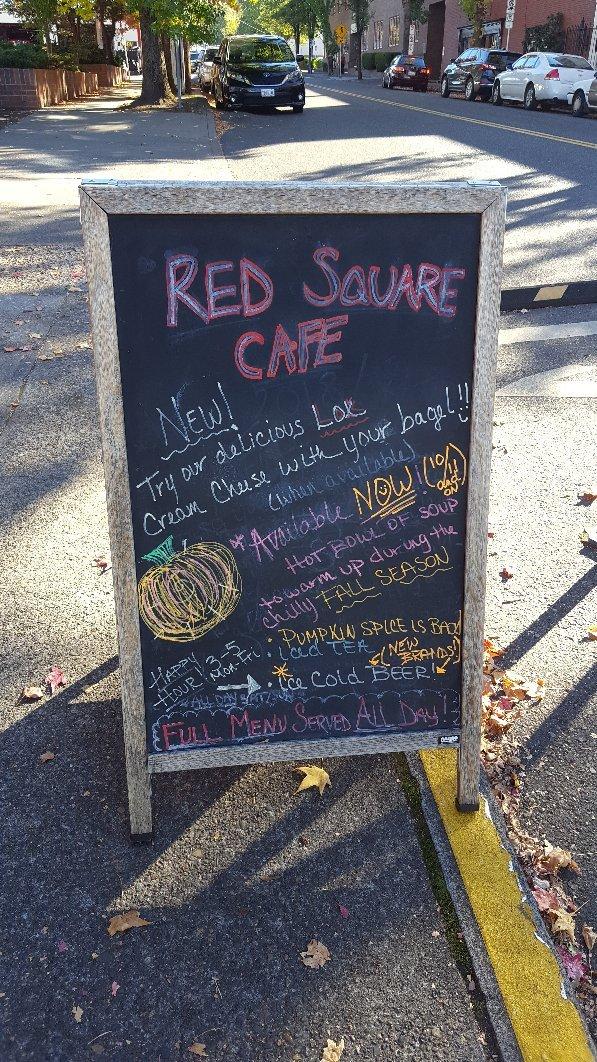 RED SQUARE
CAFE
New!
Try our delicious Lox
Cream Cheese with your bagel!!
(when available)
*Available NOW! (10/11 ON)
HOT BOWL OF SOUP
to warm up during the
chilly FALL SEASON
: PUMPKIN SPICE IS BACK
: iced TEA
HAPPY HOUR! 3-5 MON-Fri
(NEW BRANDS!)
Ice Cold BEER!
ALL DAY
FULL MENU SERVED ALL DAY!